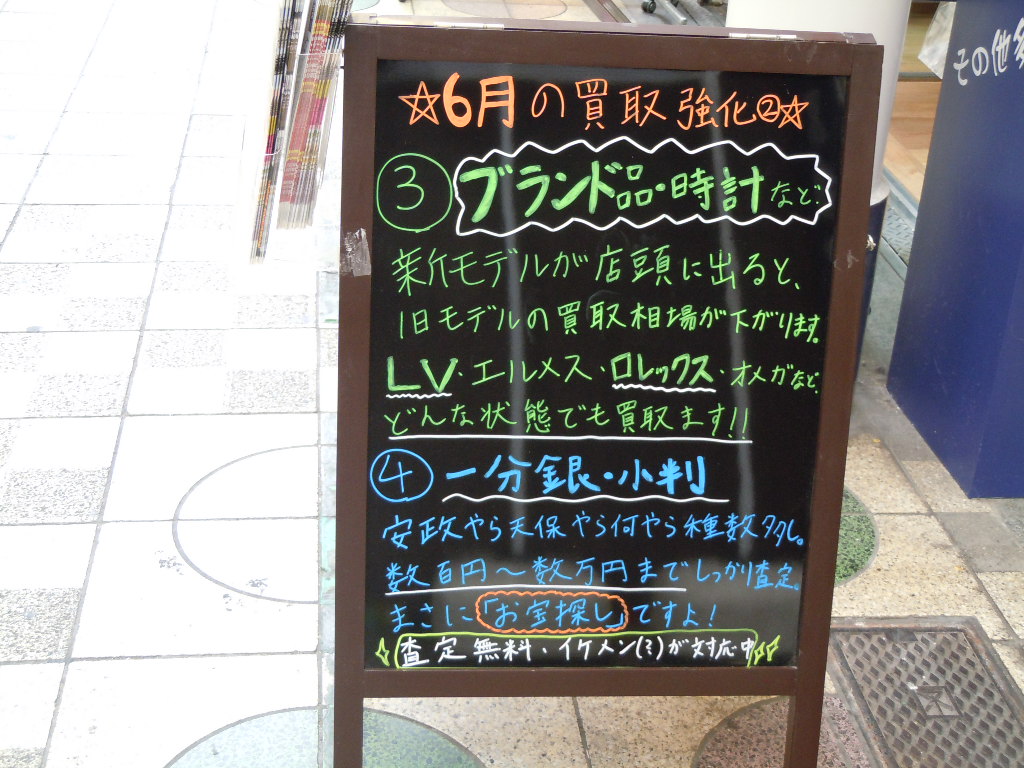 ☆6月の買取強化②☆
③ ブランド品・時計など
新作モデルが店頭に出ると、
旧モデルの買取相場が下がります。
LV・エルメス・ロレックス・オメガなど、
どんな状態でも買取ます!!
④ 一分銀・小判
安政やら天保やら何やら種数多し。
数百円〜数万円までしっかり査定。
まさに「お宝探し」ですよ!
査定無料・イケメン(?)が対応中
その他